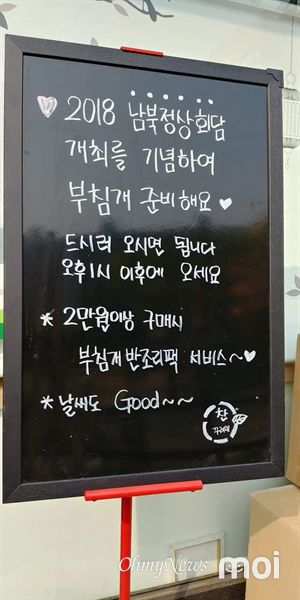 ♥ 2018 남북정상회담
개최를 기념하여
부침개 준비해요 ♥
드시러 오시면 됩니다
오후1시 이후에 오세요
* 2만원이상 구매시
부침개 반조리팩 서비스~♥
* 날씨도 Good~~
찬
OhmyNews
moi